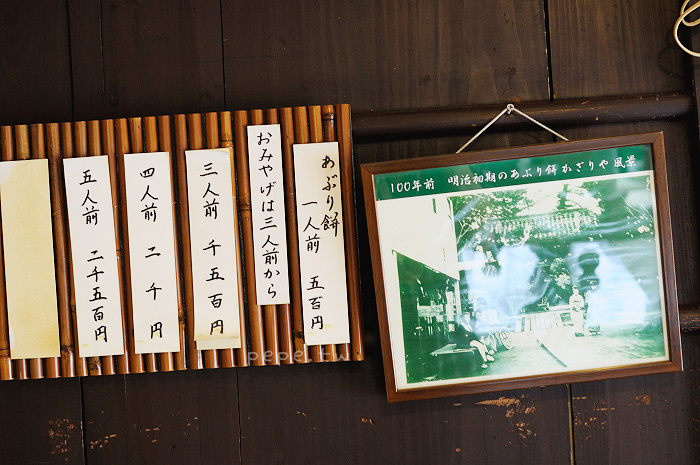 あぶり餅
一人前 五百円
おみやげは三人前から
三人前 千五百円
四人前 二千円
五人前 二千五百円
100年前 明治初期のあぶり餅かざりや風景
pepe.tw